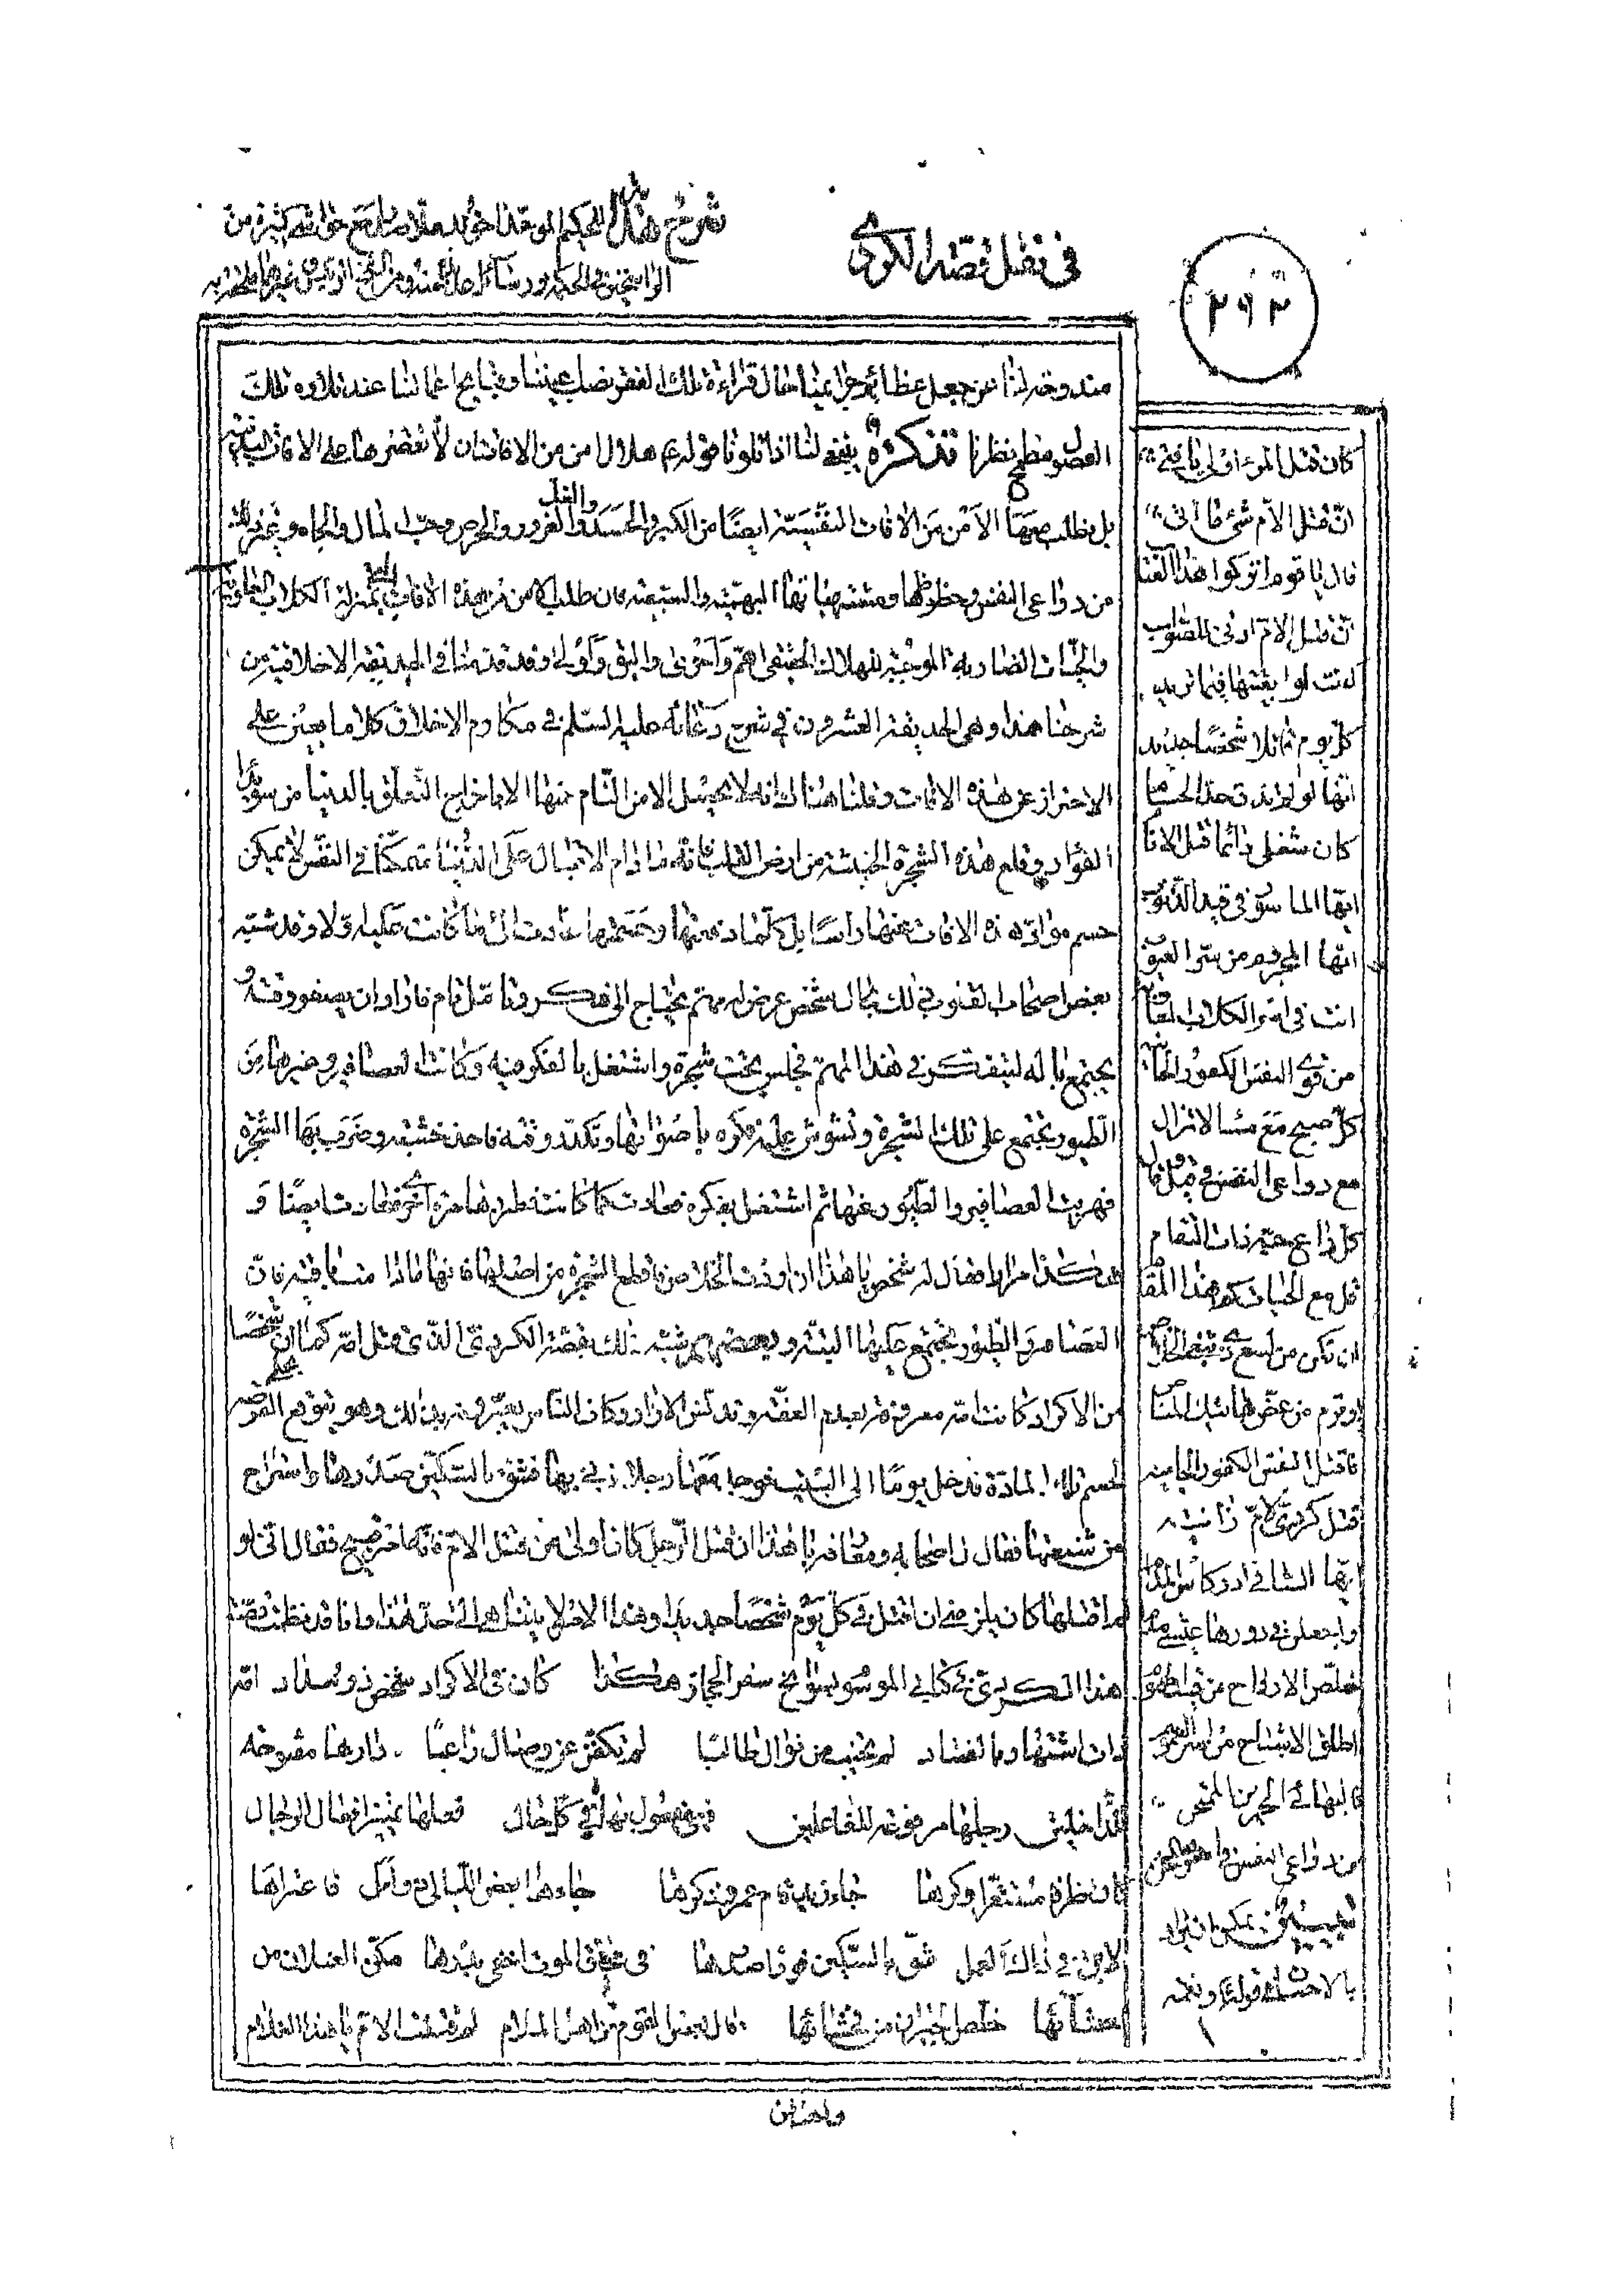 ٢٩٢
في نقل قصة الكردي
شرح
مندوحة لنا عن جعل عظائم جرائمنا حال قراءة تلك الفقر نصب عيننا وقبايح اعمالنا عند تلاوة تلك
الفصول مطمح نظرنا تذكرة ينبغي لنا اذا تلونا قوله ع هلال امن من الافات ان لا نقصرها على الافات البدنية
بل نطلب معها الامن من الافات النفسية ايضا من الكبر والحسد والغل والغرور والحرص وحب المال والجاه وغيرها
من دواعي النفس وحظوظها ومشتهياتها البهيمية والسبعية فان طلب الامن من هذه الافات التي بمنزلة الكلاب العاوية
والحيات الضارية الموجبة للهلاك الحقيقي اهم واحرى واليق واولى وقد قدمنا في الحديقة الاخلاقية من
شرحنا هذا وهي الحديقة العشرون في شرح دعائه عليه السلم في مكارم الاخلاق كلاما يعين على
الاحتراز عن هذه الافات وقلنا هناك انه لا يحصل الامن التام منها الا باخراج التعلق بالدنيا من سويداء
الفؤاد وقلع هذه الشجرة الخبيثة من ارض القلب فانه ما دام الاقبال على الدنيا متمكنا في النفس لا يمكن
حسم مواد هذه الافات عنها راسا بل كلما دفعتها وحسمتها عادت الى ما كانت عليه اولا وقد شبه
بعض اصحاب القلوب ذلك بحال شخص عرض له مهم يحتاج الى فكر وتامل تام فاراد ان يصفو وقته و
يجتمع باله ليتفكر في هذا المهم فجلس تحت شجرة واشتغل بالفكر فيه وكانت العصافير وغيرها من
الطيور تجتمع على تلك الشجرة وتشوش عليه فكره باصواتها وتكدر وقته فاخذ خشبة وضرب بها الشجرة
فهربت العصافير والطيور عنها ثم اشتغل بفكره فعادت كما كانت فطردها مرة اخرى فعادت ايضا و
هكذا مرارا فقال له شخص يا هذا ان اردت الخلاص فاقطع الشجرة من اصلها فانها ما دامت باقية فان
العصافير والطيور تجتمع عليها البتة وبعضهم شبه ذلك بقصة الكردي الذي قتل امه كما ان شخصا
من الاكراد كانت امه معروفة بعدم العفة وتدنس الازار وكان الناس يعيرونه بذلك وهو يتوقع الفرصة
لحسم تلك المادة فدخل يوما الى البيت فوجد معها رجلا يزني بها فشق بالسكين صدرها واستراح
من شنعتها فقال له اصحابه ومعارفه يا هذا ان قتل الرجل كان اولى من قتل الام فانه امر قبيح فقال اني لو
لم اقتلها كان يلزمني ان اقتل في كل يوم شخصا جديدا وهذا الامر لا يتناهى الى حد هذا وانا قد نظمت قصة
هذا الكردي في كتابي الموسوم بسوانح سفر الحجاز هكذا كان في الاكراد شخص ذو سداد امه
ذات اشتهار بالفساد لم تخيب من نوال طالبا لم تكفف عن وصال راغبا دارها مفتوحة
للداخلين رجلها مرفوعة للفاعلين فهي مفعول بها في كل حال فعلها تمييز افعال الرجال
كان ظرفا مستقرا وكرها جاء زيد قام عمرو ذكرها جاءها بعض الليالي ذو امل فاعتراها
الابن في ذاك العمل شق بالسكين فورا صدرها في محاق الموت اخفى بدرها مكن الغيلان من
احشائها خلص الجيران من فحشائها قال بعض القوم من اهل الملام لم قتلت الام يا هذا الغلام
كان قتل المرء اولى يا فتى
ان قتل الام شئ ما اتى
قال يا قوم اتركوا هذا العتاب
ان قتل الام ادنى للصواب
كنت لو ابقيتها فيما تريد
كل يوم قاتلا شخصا جديد
انها لو لم تذق حد الحسام
كان شغلي دائما قتل الانام
ايها الماسور في قيد الذنوب
ايها المحروم من سر الغيوب
انت في اسر الكلاب العاوية
من قوى النفس الكفور الجانية
كل صبح مع مسا لا تزال
مع دواعي النفس في قيل وقال
كل داع حية ذات التقام
قل مع الحيات كم هذا المقام
ان تكن من لسع ذي تبغي الخلاص
او ترم من عض هاتيك المناص
فاقتل النفس الكفور الجانية
قتل كردي لام زانية
ايها الساقي ادر كاس المدام
واجعلن في دورها عيشي مدام
خلص الارواح من قيد الهموم
اطلق الاشباح من اسر الغموم
فالبهائي الحزين الممتحن
من دواعي النفس في اسر المحن